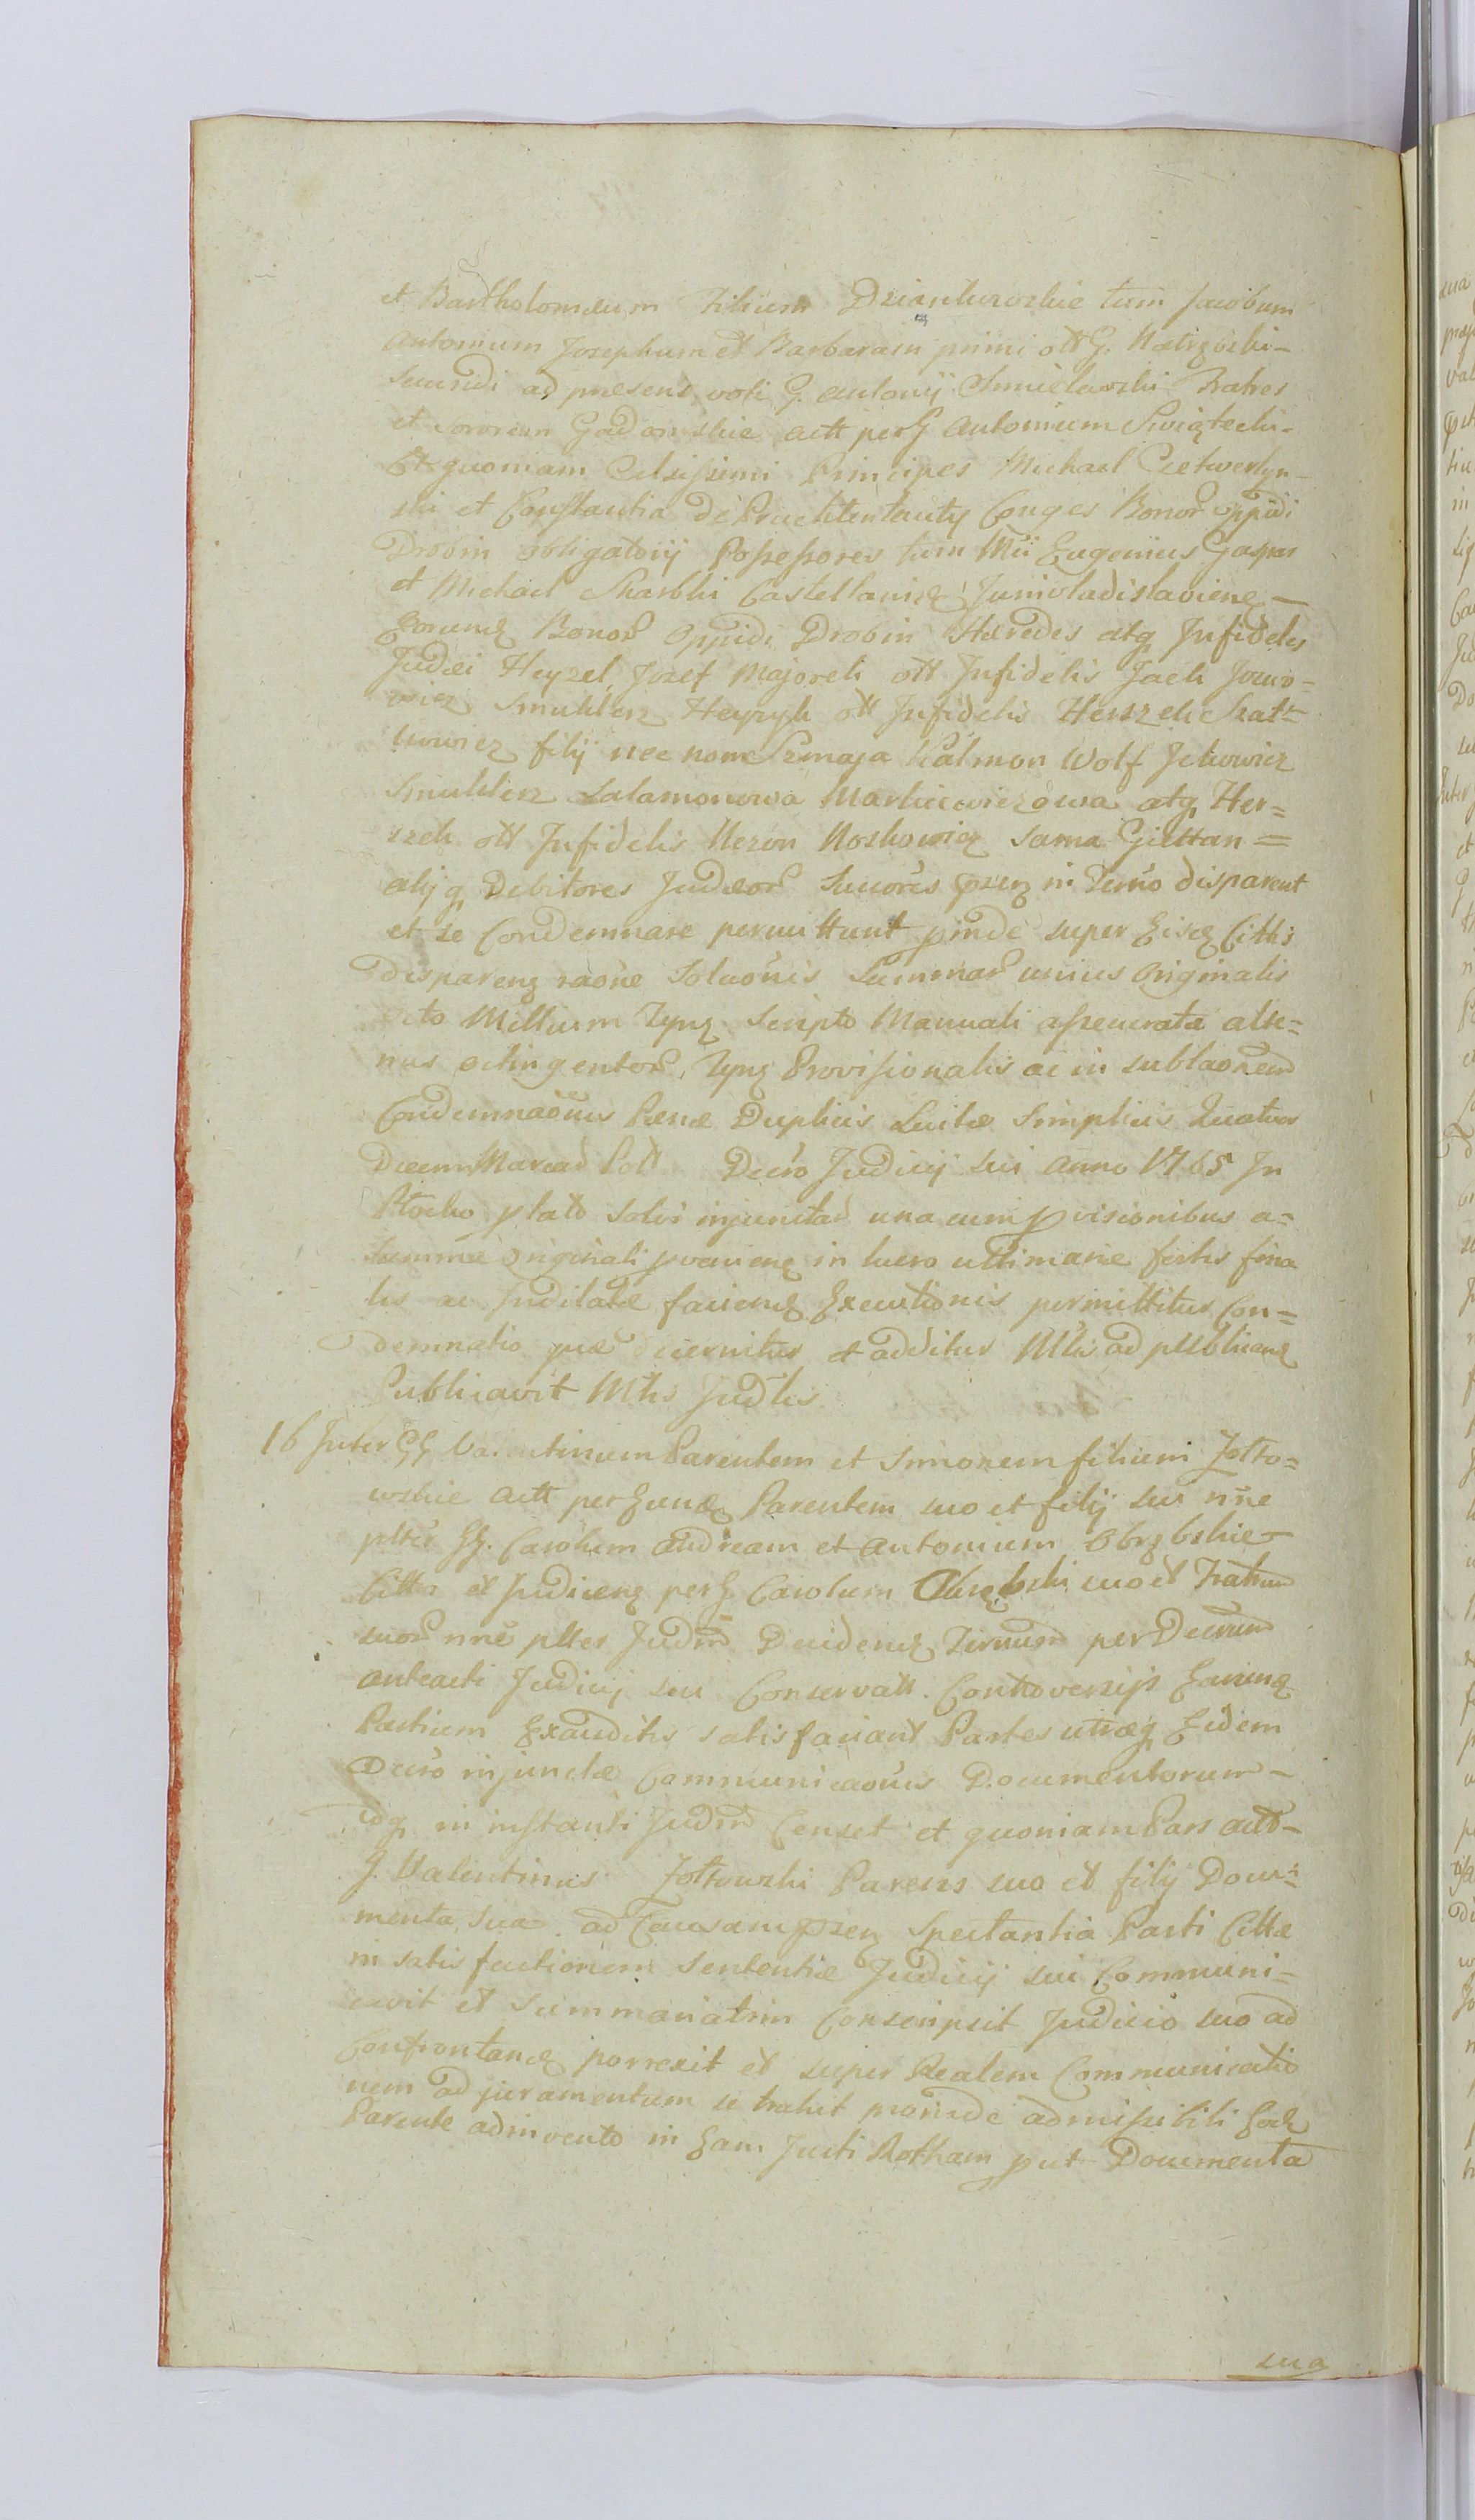 et Bartholomæum Filium Dzianturoskie tum Jacobum
Antonium Josephum et Barbaram primi ott G.
Secundi ad præsens voti G. Antonij Chmielewski Fratres
et Sororem Gadomskie actt per G Antonium Swiątecki -
Et quoniam Celsissimi Principes Michael Czetwertyn-
ski et Constantia de Conges Bonor oppidi
Drobin obligatorij Possessores tum Mii Eugenius Gaspar
et Michael Skarbki Castellanidæ Juniwladislavienę -
Eorumq Bonor Oppidi Drobin Hæredes atq Infideles
Judæi Heyzel, Josef Majorek ott Infidelis Jaek
wicz Smuklerz Heyzyk ott Infidelis Herszek Szat=
kowicz filij nec non Szmaja Kalmon Wolf Jckowicz
Smuklerz Salamonowa Markiewiczowa atq Her=
szek ott Infidelis Mezon Moskowicz Sama Giettan =
alijq Debitores Judæor Succores præn in Terno disparent
et se Condemnare permittunt pinde super Eisd Cittis
disparenz raône Soluonis Summar unius Originalis
octo Millium Tynf Scripto Manuali assecuratæ alte=
rius octingentor Tynf Provisionalis ac in sublaonem
Condemnaonis Pænæ Duplicis Luitæ Simplicis Quatuor
Decem Marcar Poll Decro Judicij Sui Anno 1765 In
Plocko plato Solvi injunctar una cum pvisionibus a=
Summa Originali pvenienz in lucro ultimariæ fortis fina
lis ac Inditatæ faciendæ Executionis permittitur Con=
demnatio quæ decernitur et additur Mlis ad publicanę
Publicavit Mlis Judlis
16 Inter GG Valentinum Parentem et Simonem filium Zolto=
wskie actt per Eund Parentem suo et filij sui nne
plter GG. Carolum Andream et Antonium Obrębskie -
Cittos et Judicenz per G Carolum Obrębski suo et Fratrum
suor nne plter Judm Decidenz Ternum per Decrum
anteacti Judicij sui Conservatt. Controversijs Earumq
Partium Exauditis satisfaciant Partes utræq Eidem
Decro injunctæ Communicaonis Documentorum -
idq in instanti Judm Censet et quoniam Pars actt -
G. Valentinus Zoltowski Parens suo et filij Docu=
menta sua ad Causam præn Spectantia Parti Cittæ
in satisfactionem Sententiæ Judicij sui Communi=
cavit et Summariatim Conscripsit Judicio suo ad
Confrontanę porrexit et super Realem Communicatio
nem ad juramentum se trahit proinde admissibili Eod
Parente adinvento in Eam Jurti Rotham put Documenta
sua